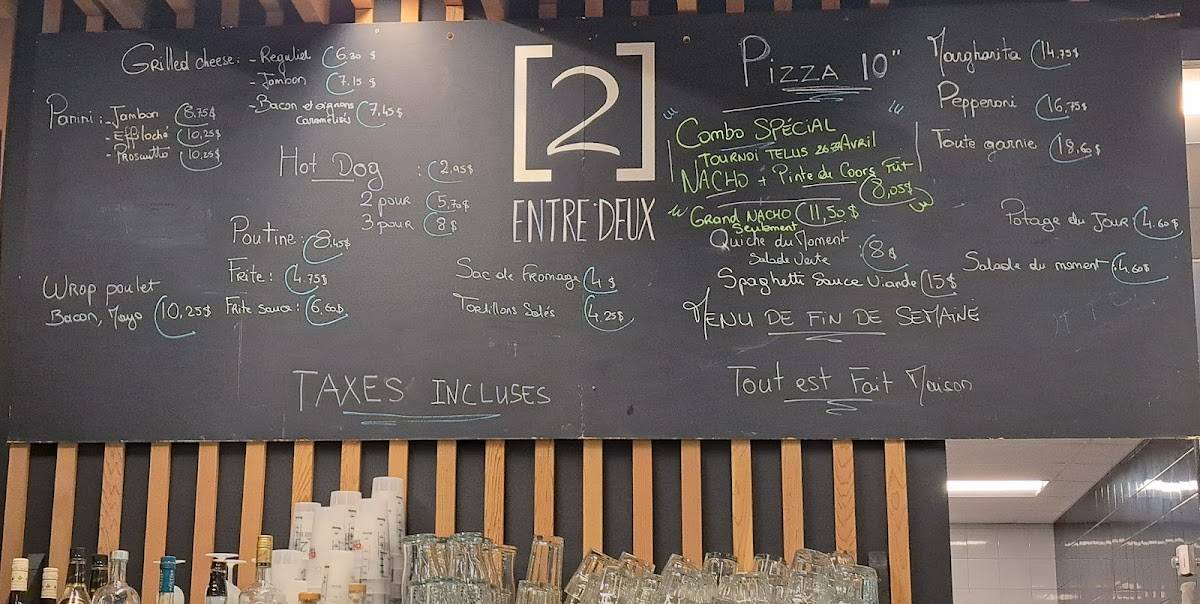 Grilled cheese: - Régulier 6.30 $
- Jambon 7.15 $
- Bacon et oignons caramélisés 7,45 $
Panini: - Jambon 8,75 $
- Effiloché 10,25 $
- Prosciutto 10.25 $
Hot Dog : 2,95 $
2 pour 5,70 $
3 pour 8 $
Poutine: 8,45 $
Frite: 4.75 $
Frite sauce: 6,60 $
Wrop poulet
Bacon, Mayo 10,25 $
[2]
ENTRE·DEUX
Sac de fromage 4 $
Tortillons Salés 4.25 $
TAXES INCLUSES
PIZZA 10"
Margharita 14.75 $
Pepperoni 16,75 $
Toute garnie 18,60 $
Combo SPÉCIAL
TOURNOI TELUS Avril
NACHO + Pinte de Coors Fût
8,05 $
Grand NACHO 11,50 $
Seulement
Quiche du Moment : 8 $
Salade Verte
Spaghetti Sauce Viande 15 $
Potage du Jour 4.60 $
Salade du moment : 4.60 $
MENU DE FIN DE SEMAINE
Tout est Fait Maison